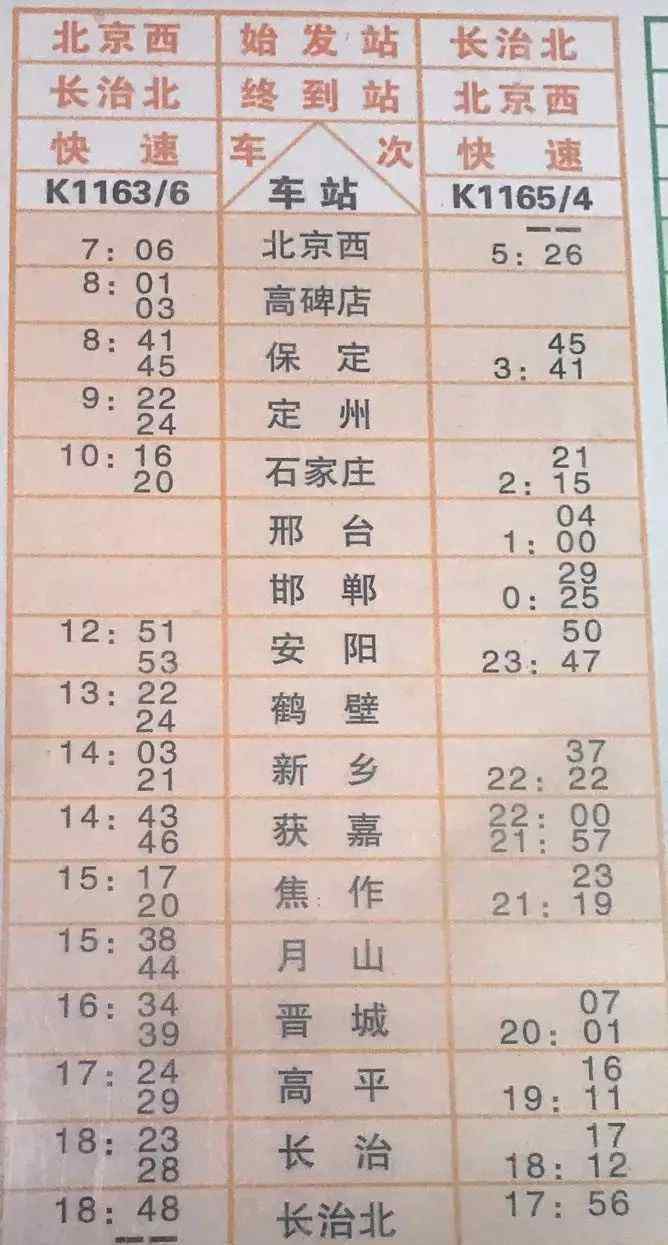 北京西 始发站 长治北
长治北 终到站 北京西
快速 车次 快速
K1163/6 车站 K1165/4
7:06 北京西 5:26
8:01 高碑店
03
8:41 保定 45
45 3:41
9:22 定州
24
10:16 石家庄 21
20 2:15
邢台 04
1:00
邯郸 29
0:25
12:51 安阳 50
53 23:47
13:22 鹤壁
24
14:03 新乡 37
21 22:22
14:43 获嘉 22:00
46 21:57
15:17 焦作 23
20 21:19
15:38 月山
44
16:34 晋城 07
39 20:01
17:24 高平 16
29 19:11
18:23 长治 17
28 18:12
18:48 长治北 17:56